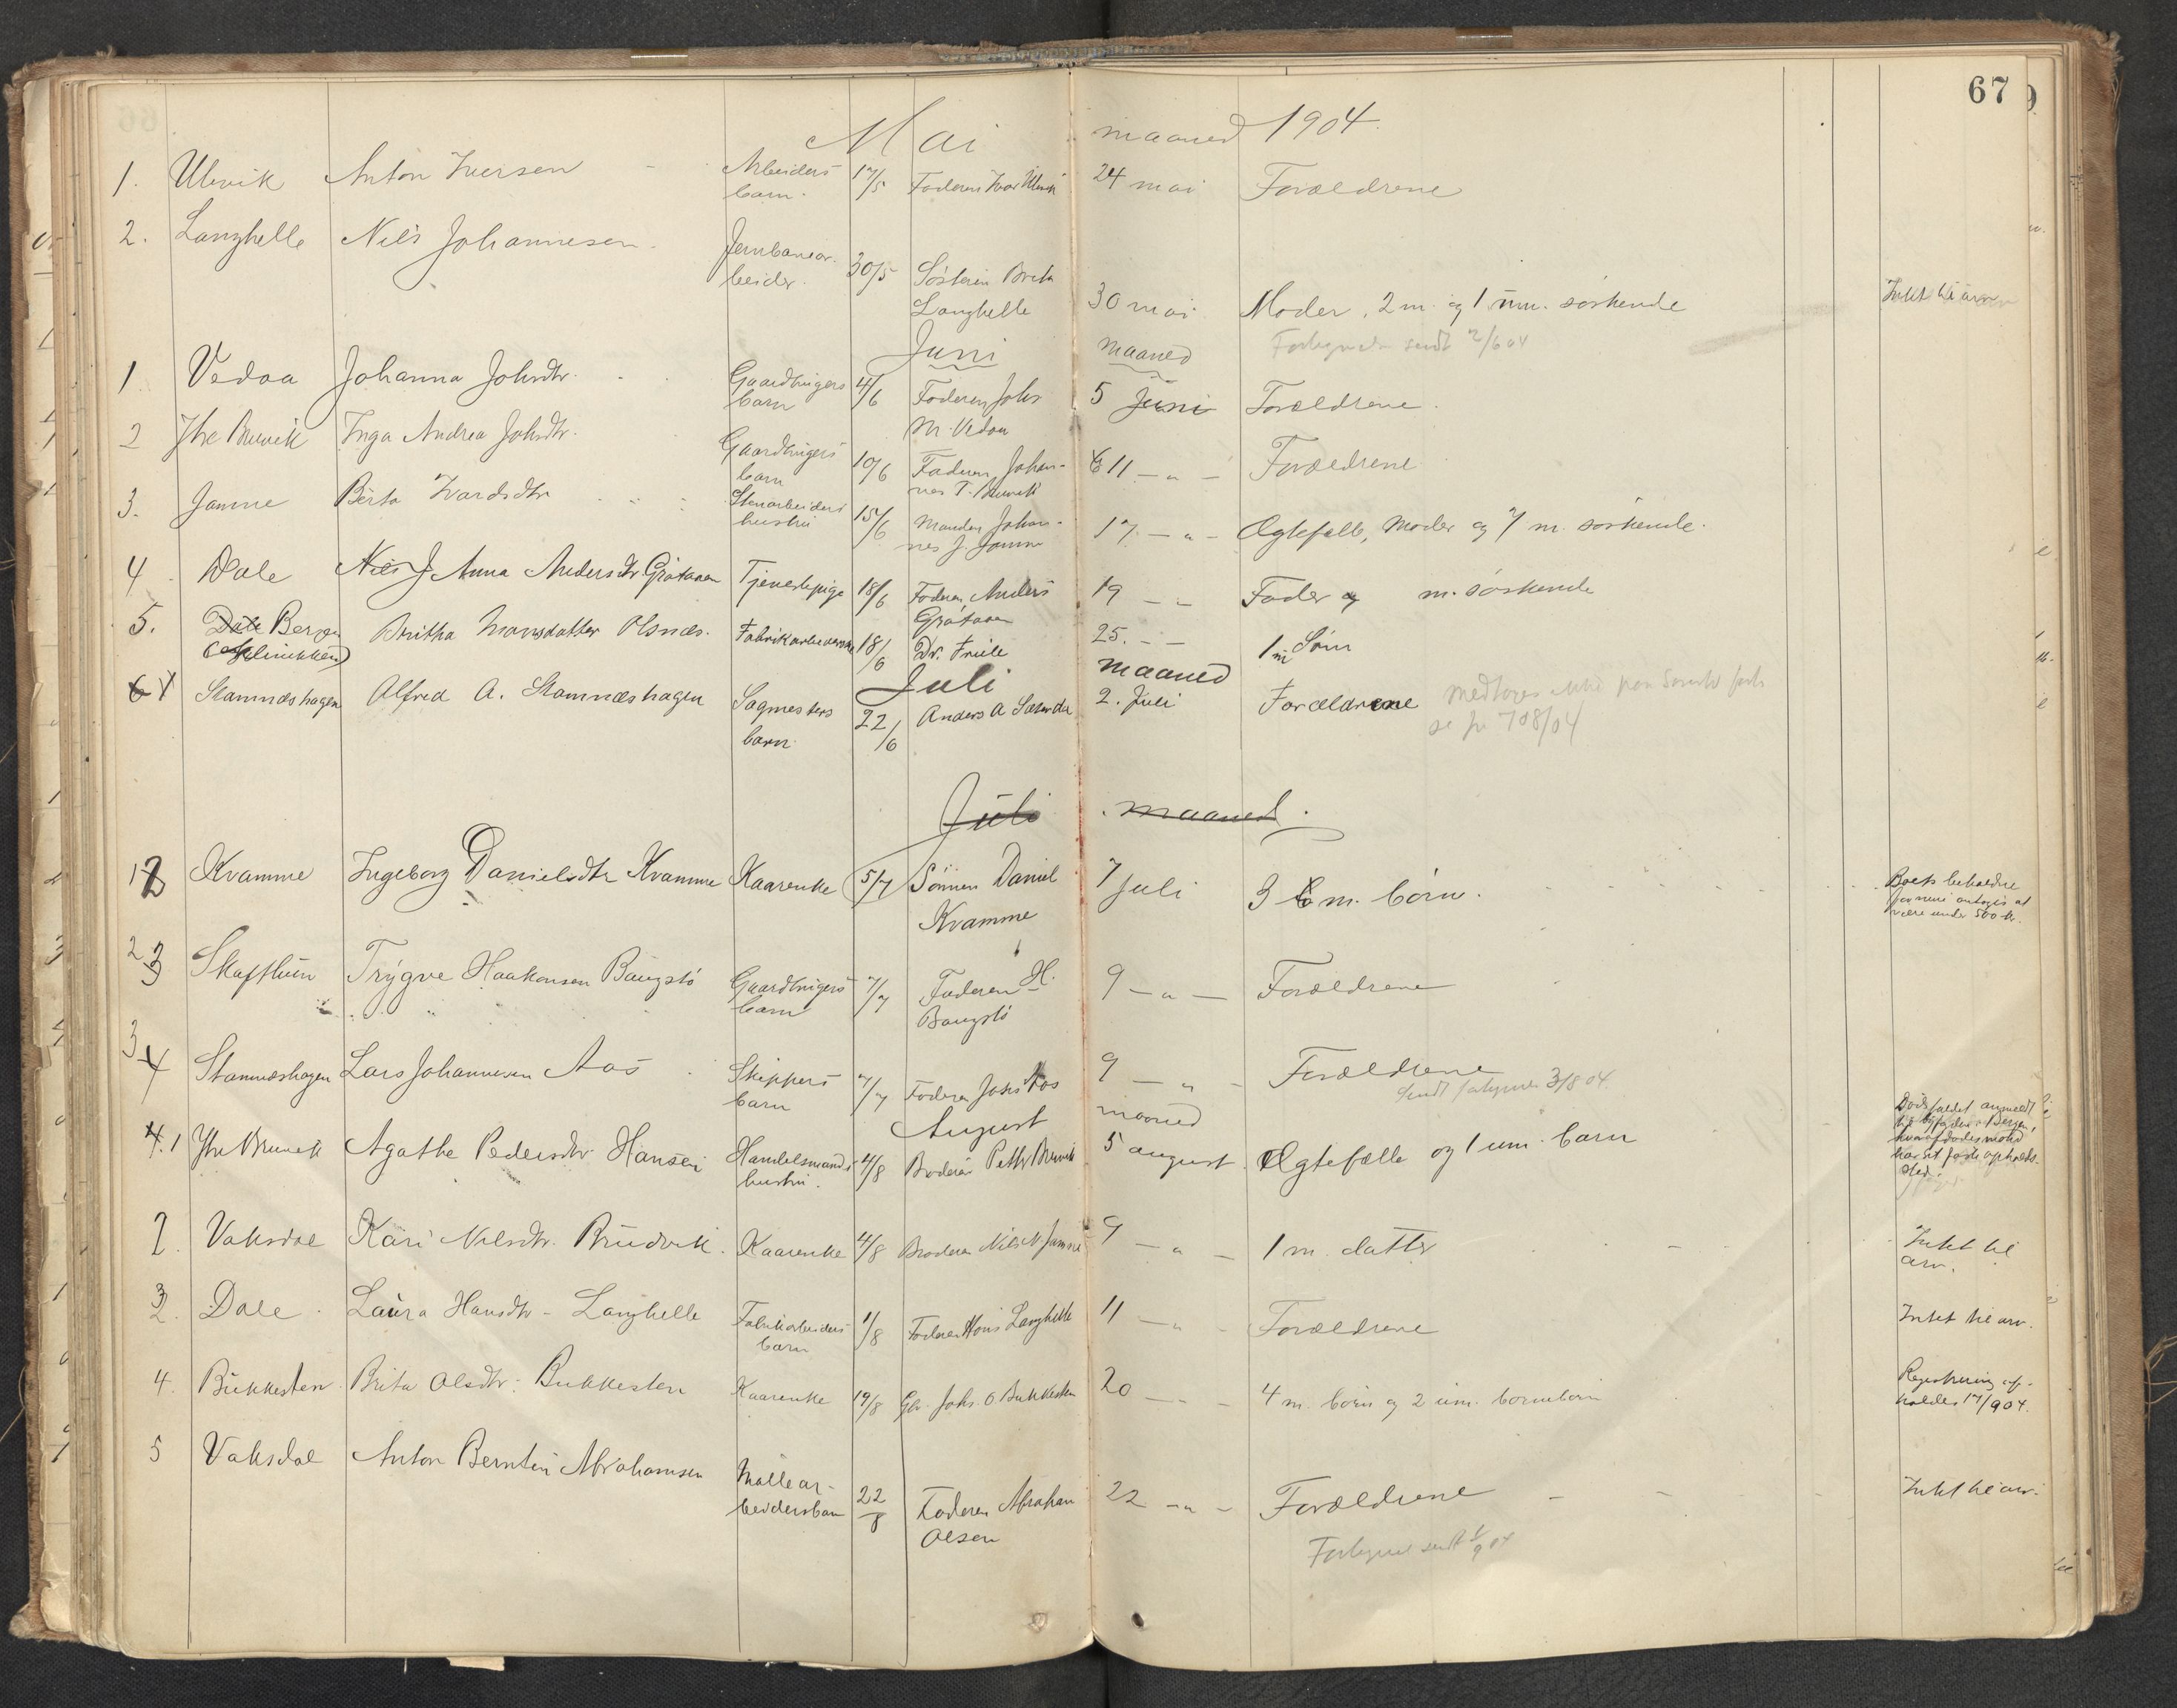 67
Mai maaned 1904.
1. Ulvik Anton Iversen Arbeiders barn. 17/5 Faderen Ivar Ulvik 24 mai Forældrene
2. Langhelle Nils Johannesen. Jernbanear-beider. 30/5 Søsteren Brita Langhelle 30 mai Moder, 2 m. og 1 um. søskende Intet til arv
sendt 2/6 04
Juni maaned
1 Vedaa Johanna Johsdtr. Gaardbrugers barn 4/6 Faderen Johs M. Vedaa 5 Juni Forældrene.
2 Ytre Bruvik Inga Andrea Johsdtr. Gaardbrugers barn 10/6 Faderen Johan-nes T. Bruvik 11 — " — Forældrene
3. Jamne Berta Ivarsdtr Stenarbeiders hustru 15/6 Manden Johan-nes J. Jamne 17 — " — Ægtefælle, Moder og 7 m. søskende.
4. Dale Nils J Anna Andersdtr. Gråtaaen Tjenestepige 18/6 Faderen Anders Gråtaaen 19 — — Fader og m. søskende
5. Dale Bergen Britha Monsdatter Olsnæs. Fabrikarbeiderske 18/6 Dr. Friele 25. — — 1 m Søn
Juli maaned
6 1 Stamnæshagen Alfred A. Stamnæshagen Sagmesters barn. 22/6 Anders A 2. Juli Forældrene
se jr 708/04
Juli maaned.
12 Kvamme Ingeborg Danielsdtr Kvamme Kaarenke 5/7 Sønnen Daniel Kvamme 7 Juli 3 m. børn. Boets beholdne formue antages at være under 500 kr.
2 3 Skaftun Trygve Haakonsen Baugstø Gaardbrugers barn 7/7 Faderen H. Baugstø 9 — " — Forældrene
3 4 Stamnæshagen Lars Johannesen Aas Skippers barn 7/7 Faderen Johs Aas 9 — " — Forældrene
sendt 3/8 04.
August maaned
4. 1 Ytre Bruvik Agathe Pedersdtr Hansen Handelsmands hustru. 4/8 Broderen Petter Bruvik 5 august. Ægtefælle og 1 um. barn Dødsfaldet anmeldt til byfogden i Bergen, hvor afdødes mand har sit faste opholds-sted.
2. Vaksdal Kari Nilsdtr. Bruvik. Kaarenke 4/8 Broderen Nils N. Jamne 9 — " — 1 m. datter Intet til arv.
3 2. Dale Laura Hansdtr - Langhelle Fabrikarbeiders barn 1/8 Faderen Hans Langhelle 11 — " — Forældrene Intet til arv.
4. Bukkesten Brita Olsdtr. Bukkesten Kaarenke 19/8 Gbr. Johs. O. Bukkesten 20 — — 4 m. børn og 2 um. børnebørn Registrering af-holdes 17/9 04.
5 Vaksdal Anton Berntin Abrahamsen Møllear-beidersbarn 22/8 Faderen Abraham Olsen 22 — " — Forældrene Intet til arv.
sendt 1/9 04